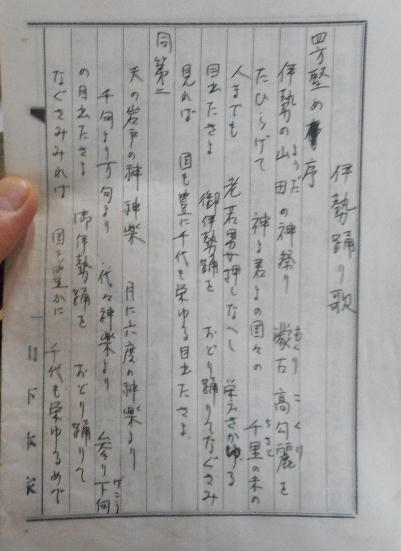 伊勢踊り歌
四方堅め 序
伊勢の山田の神祭り 蒙古高句麗を
ようだ もくり こくり
たひらげて 神よ君よの国々の 千里の末の
ちさと
人までも 老若男女押しなへし 栄えさかゆる
目出たさよ 御伊勢踊を おどり踊りてなぐさみ
見れば 国も豊に千代も栄ゆる目出たさよ
同第二
天の岩戸の神神楽 月に六度の神楽より
千句より万句より 代々神楽より 参り下向
げこう
の目出たさよ 御伊勢踊を おどり踊りて
なぐさみみれば 国も豊かに 千代も栄ゆるめで